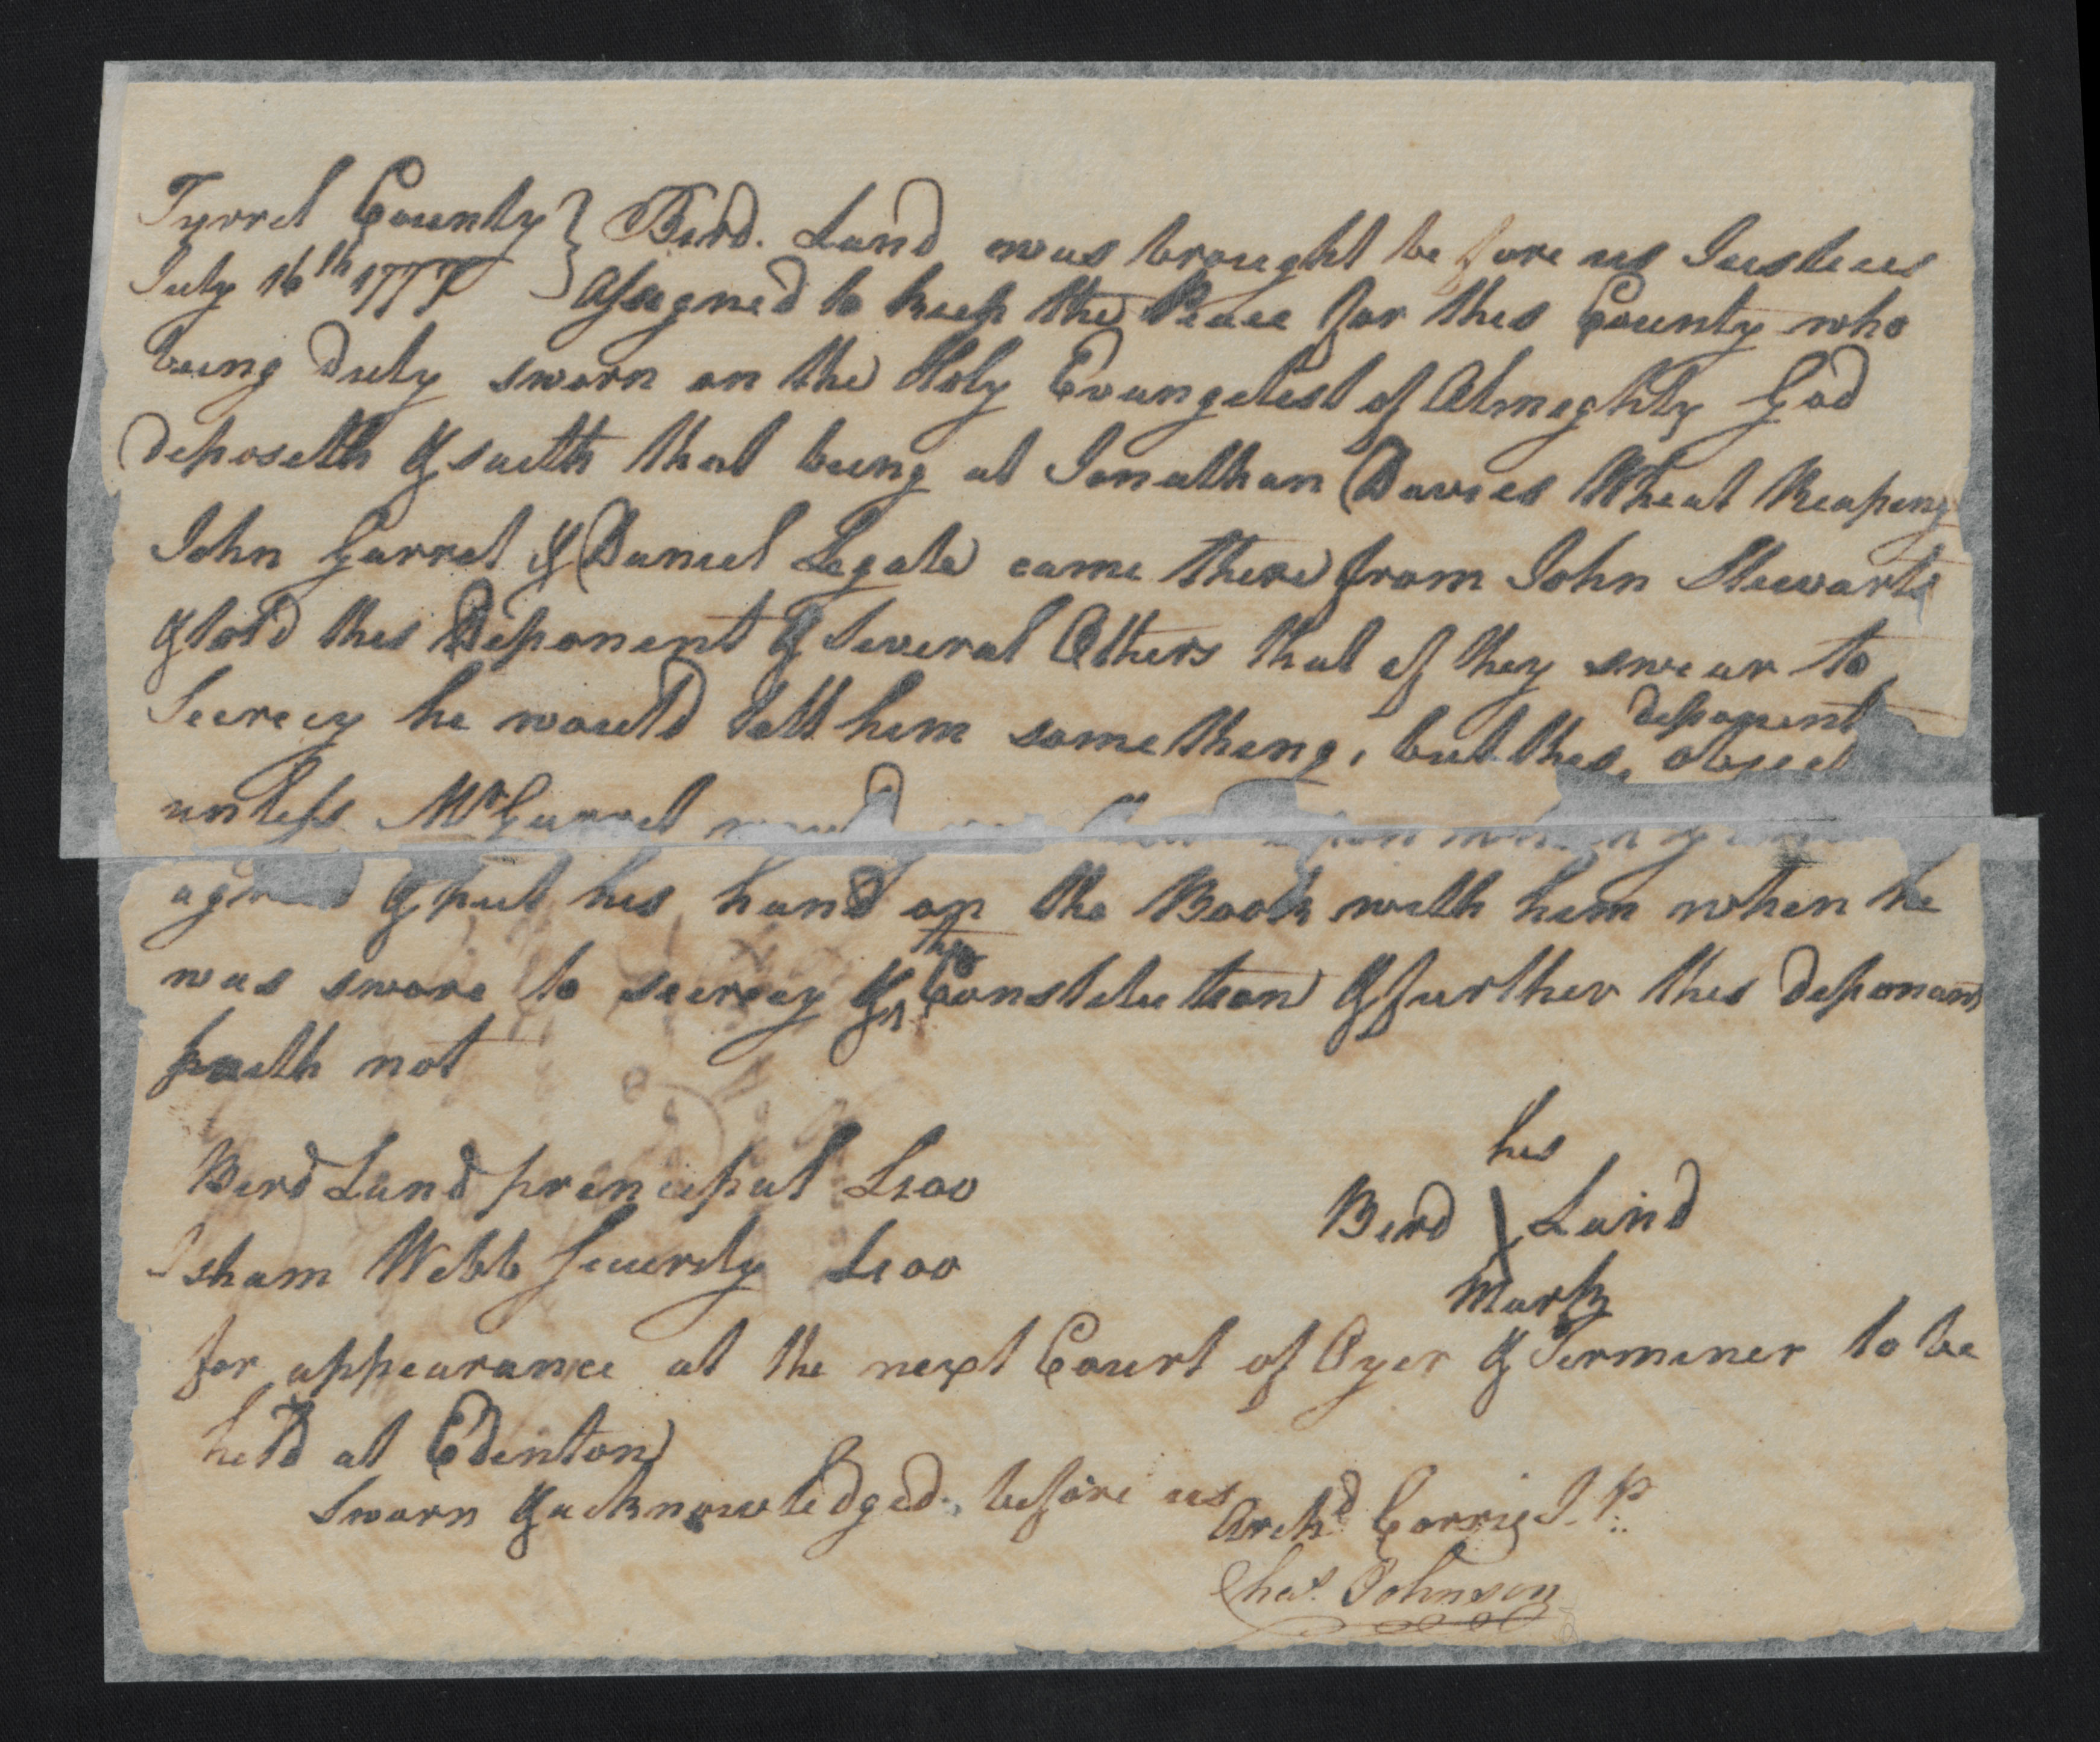 Tyrrel County } Bird. Land was brought before us Justices
July 16th 1777 } Assigned to keep the Peace for this County who
being duly sworn on the Holy Evangelist of Almighty God
deposeth & saith that being at Jonathan Davies Wheat Reaping
John Garret & Daniel Legate came there from John Stewarts
& told this Deponent & Several Others that if they swear to
Secrecy he would tell him something, but this deponent object
unless Mr Garret
agreed & put his hand on the Book with him when he
was swore to secrecy & the Constitution & further this deponant
saith not
Bird Land principal £100
Isham Webb Security £100
his
Bird X Land
Mark
for appearance at the next Court of Oyer & Terminer to be
held at Edenton
Sworn & acknowledged before us
Archd Corrie J. P.
Chas. Johnson